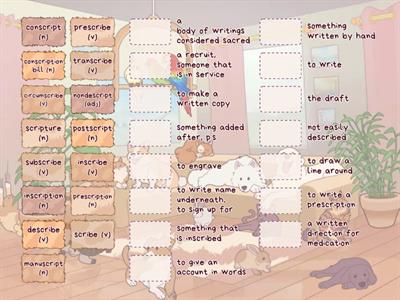 conscript (n)
prescribe (v)
conscription bill (n)
transcribe (v)
circumscribe (v)
nondescript (adj)
scripture (n)
postscript (n)
subscribe (v)
inscribe (v)
inscription (n)
prescription (n)
describe (v)
scribe (v)
manuscript (n)
a
body of writings
considered sacred
a recruit,
someone that
is in service
to make a
written copy
something added
after, p.s
to engrave
to write name
underneath,
to sign up for
something that
is inscribed
to give an
account in words
something
written by hand
to write
the draft
not easily
described
to draw a
line around
to write a
prescription
a written
direction for
medication